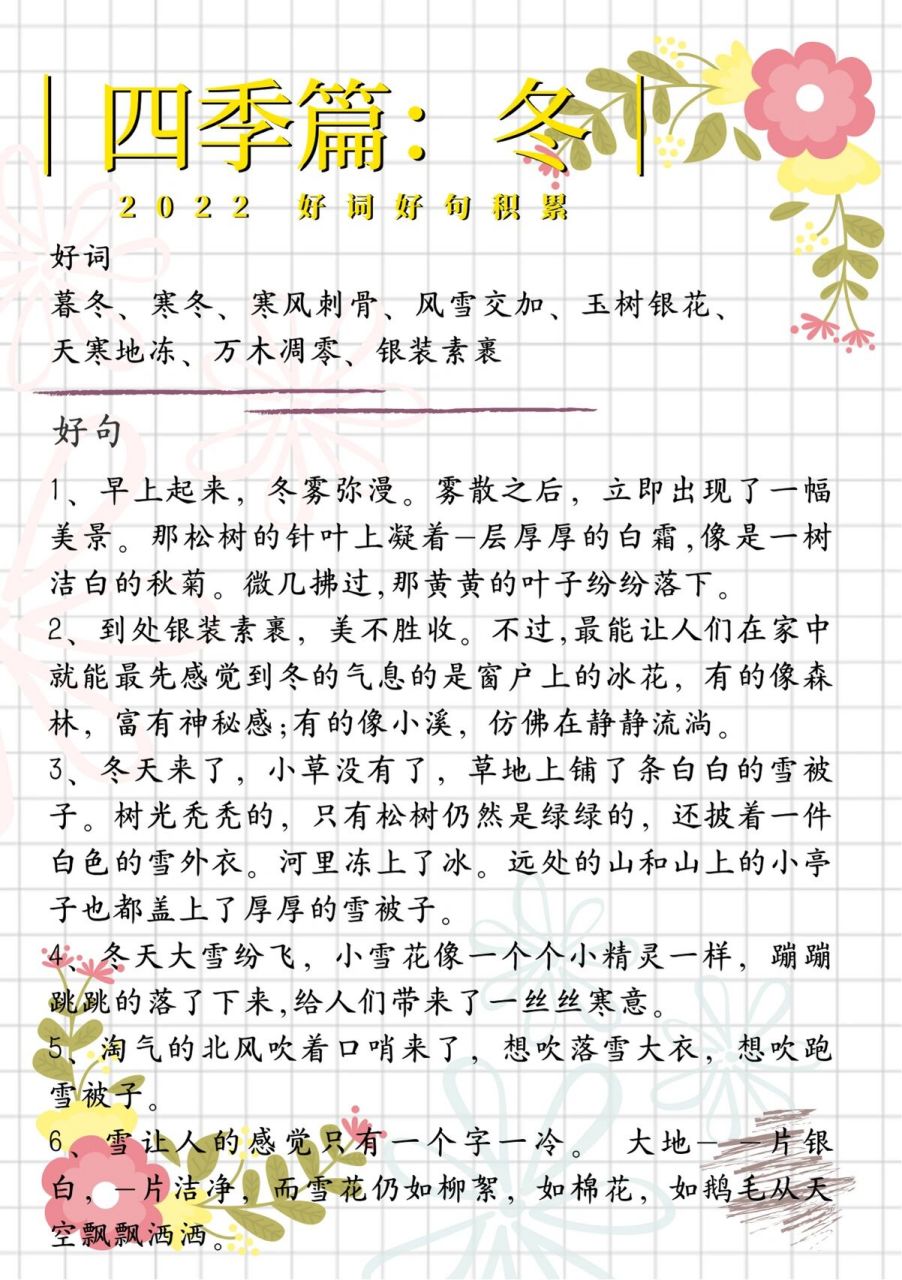 四季篇：冬
2022 好词好句积累
好词
暮冬、寒冬、寒风刺骨、风雪交加、玉树银花、
天寒地冻、万木凋零、银装素裹
好句
1、早上起来，冬雾弥漫。雾散之后，立即出现了一幅
美景。那松树的针叶上凝着—层厚厚的白霜,像是一树
洁白的秋菊。微几拂过,那黄黄的叶子纷纷落下。
2、到处银装素裹，美不胜收。不过,最能让人们在家中
就能最先感觉到冬的气息的是窗户上的冰花，有的像森
林，富有神秘感;有的像小溪，仿佛在静静流淌。
3、冬天来了，小草没有了，草地上铺了条白白的雪被
子。树光秃秃的，只有松树仍然是绿绿的，还披着一件
白色的雪外衣。河里冻上了冰。远处的山和山上的小亭
子也都盖上了厚厚的雪被子。
4、冬天大雪纷飞，小雪花像一个个小精灵一样，蹦蹦
跳跳的落了下来,给人们带来了一丝丝寒意。
5、淘气的北风吹着口哨来了，想吹落雪大衣，想吹跑
雪被子。
6、雪让人的感觉只有一个字一冷。 大地——片银
白，—片洁净，而雪花仍如柳絮，如棉花，如鹅毛从天
空飘飘洒洒。